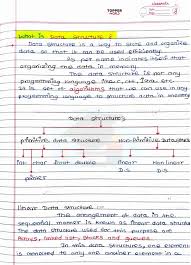 TOPPER
What is Data Structure ?
Data Structure is a way to store and organize
data so that it can be used efficiently.
As per name indicates itself that
organizing the data in memory.
The data structure is not any
programming language like C, C++, Java etc.
It is set of algorithms that we can use in any
programming language to structure data in memory.
Data Structures
primitive data structure Non-Primitive data structure
int char float double linear Non linear
pointer D.S D.S
Linear Data Structure
The arrangement of data in the
sequential manner is known as linear data structure
The data structure used for this purpose are
Arrays, linked list, stacks and queues.
In this data structures, one element
is connected to only one another element in a